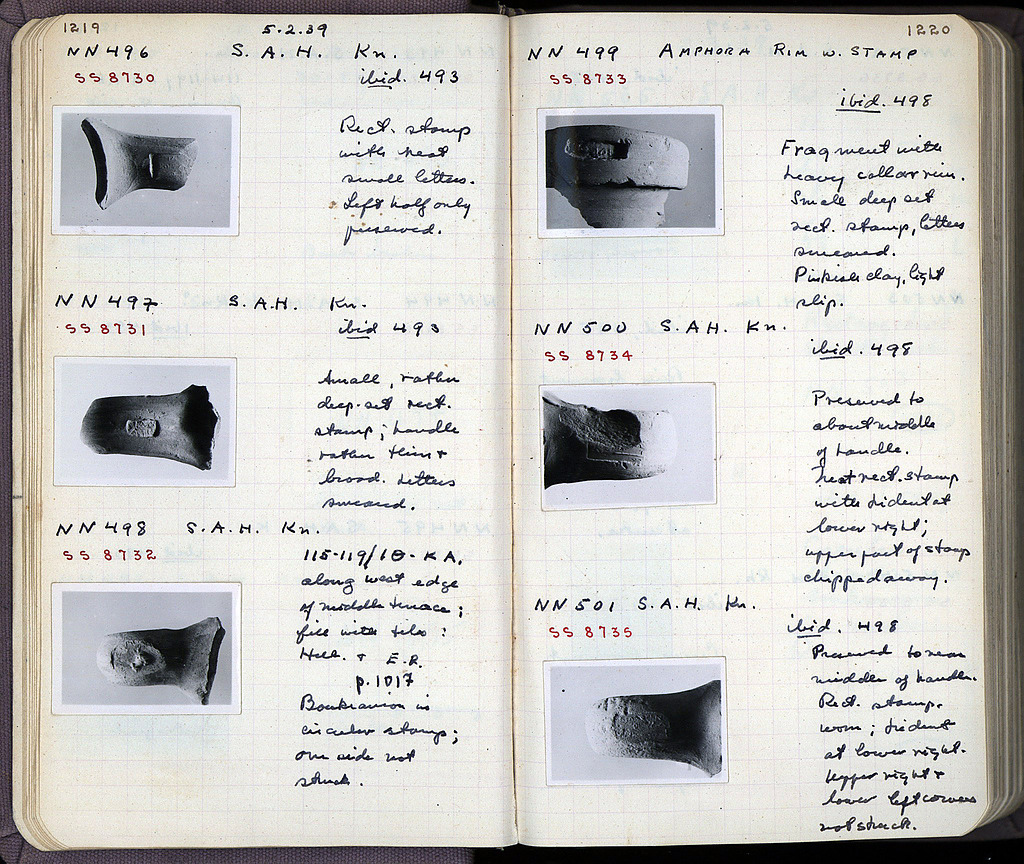 1219
5.2.39
NN 496 S. A. H. Kn.
SS 8730
ibid. 493
Rect. stamp
with neat
small letters.
Left half only
preserved.
NN 497 S. A. H. Kn.
SS 8731
ibid 493
Small, rather
deep-set rect.
stamp; handle
rather thin +
broad. Letters
smeared.
NN 498 S. A. H. Kn.
SS 8732
115-119/ΙΘ-ΚΑ,
along west edge
of middle terrace;
fill with tile:
Hell. + E.R.
p. 1017
Boukranion in
circular stamp;
one side not
struck.
1220
NN 499 AMPHORA RIM W. STAMP
SS 8733
ibid. 498
Fragment with
heavy collar rim.
Small deep set
rect. stamp, letters
smeared.
Pinkish clay, light
slip.
NN 500 S. A. H. Kn.
SS 8734
ibid. 498
Preserved to
about middle
of handle.
Neat rect. stamp
with trident at
lower right;
upper part of stamp
chipped away.
NN 501 S. A. H. Kn.
SS 8735
ibid. 498
Preserved to near
middle of handle.
Rect. stamp.
worn; trident
at lower right.
Upper right +
lower left corners
not struck.